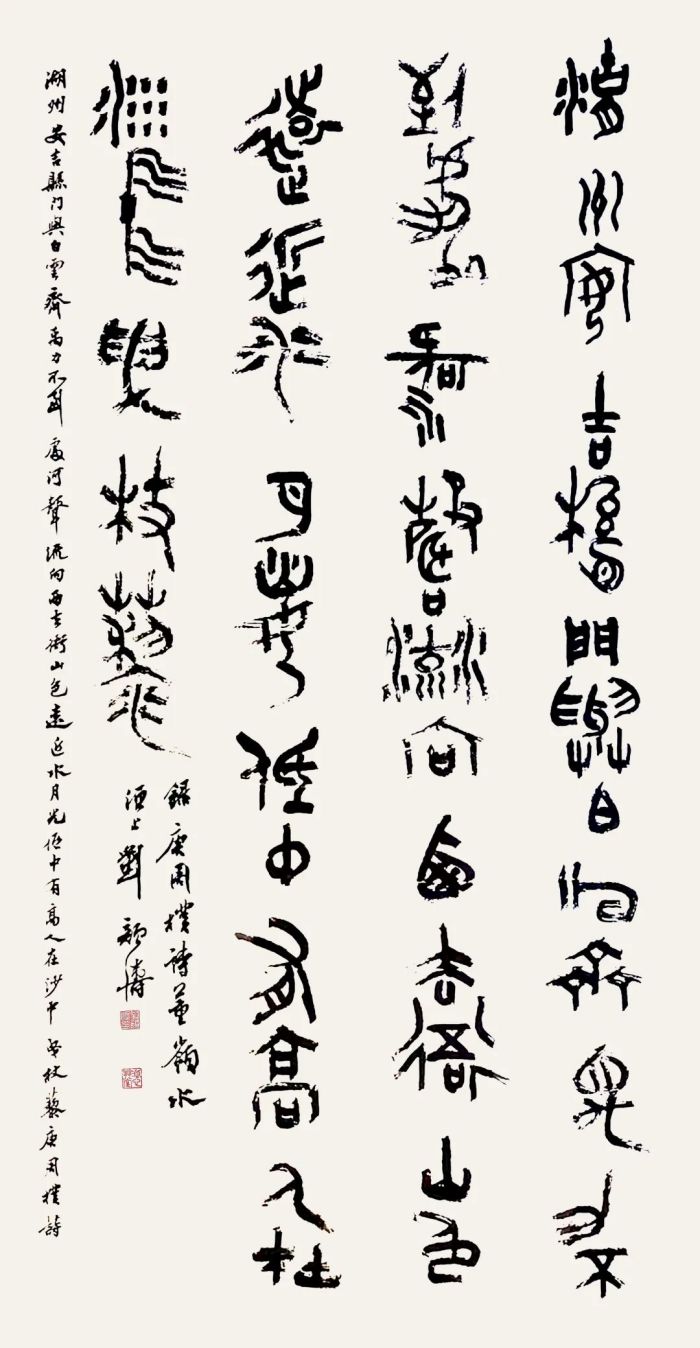 湖州安吉縣門與白雲齊禹力不
到處河聲流向西去衙山色
遠近水月光低中有高人在
沙中曳杖藜
錄唐周樸詩董嶺水
洹上劉顏濤
湖州安吉縣門與白雲齊禹力不到處河聲流向西去衙山色遠近水月光低中有高人在沙中曳杖藜唐周樸詩